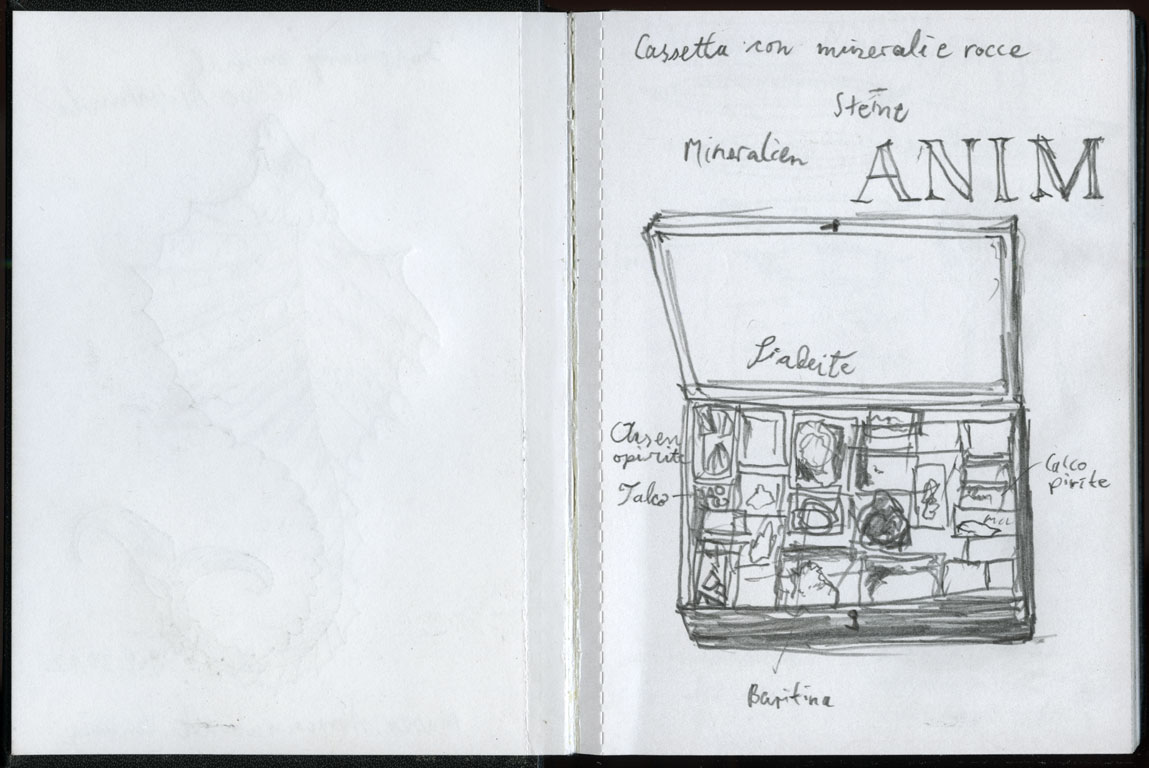 Cassetta con minerali e rocce
Steine
Mineralien
ANIM
Giadeite
Arsen
opirite
Talco
Calco
pirite
Baritina